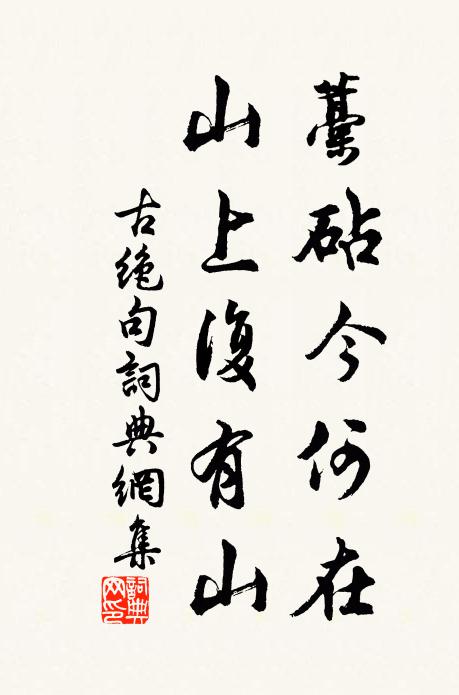 藁砧今何在
山上復有山
古絶句詞典網集
詞典網印